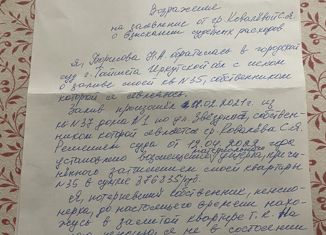 Возражение
на заявление от гр Ковалёвой С.А.
о взыскании судебных расходов
Я, Н.А обратилась в городской
суд г. Тайшета Иркутской обл с иском
о заливе моей кв №35, собственником
которой я являюсь.
Залив произошёл .01.2021г. из
кв №37 дома №1 по ул Звёздная, собствен-
ником которой является гр. Ковалёва С.А.
Решением суда от 19.04.2022 года
установлено возмещение материального ущерба, причи-
нённого затоплением моей квартиры
№35 в сумме 376835 руб.
Я, потерпевший собственник, пенсио-
нерка, до настоящего времени нахо-
жусь в залитой квартире т.к. на
я не в состоянии